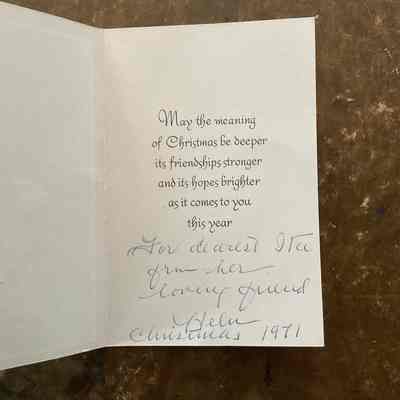 May the meaning
of Christmas be deeper
its friendships stronger
and its hopes brighter
as it comes to you
this year
For dearest
from her
loving friend
Helen
Christmas 1971